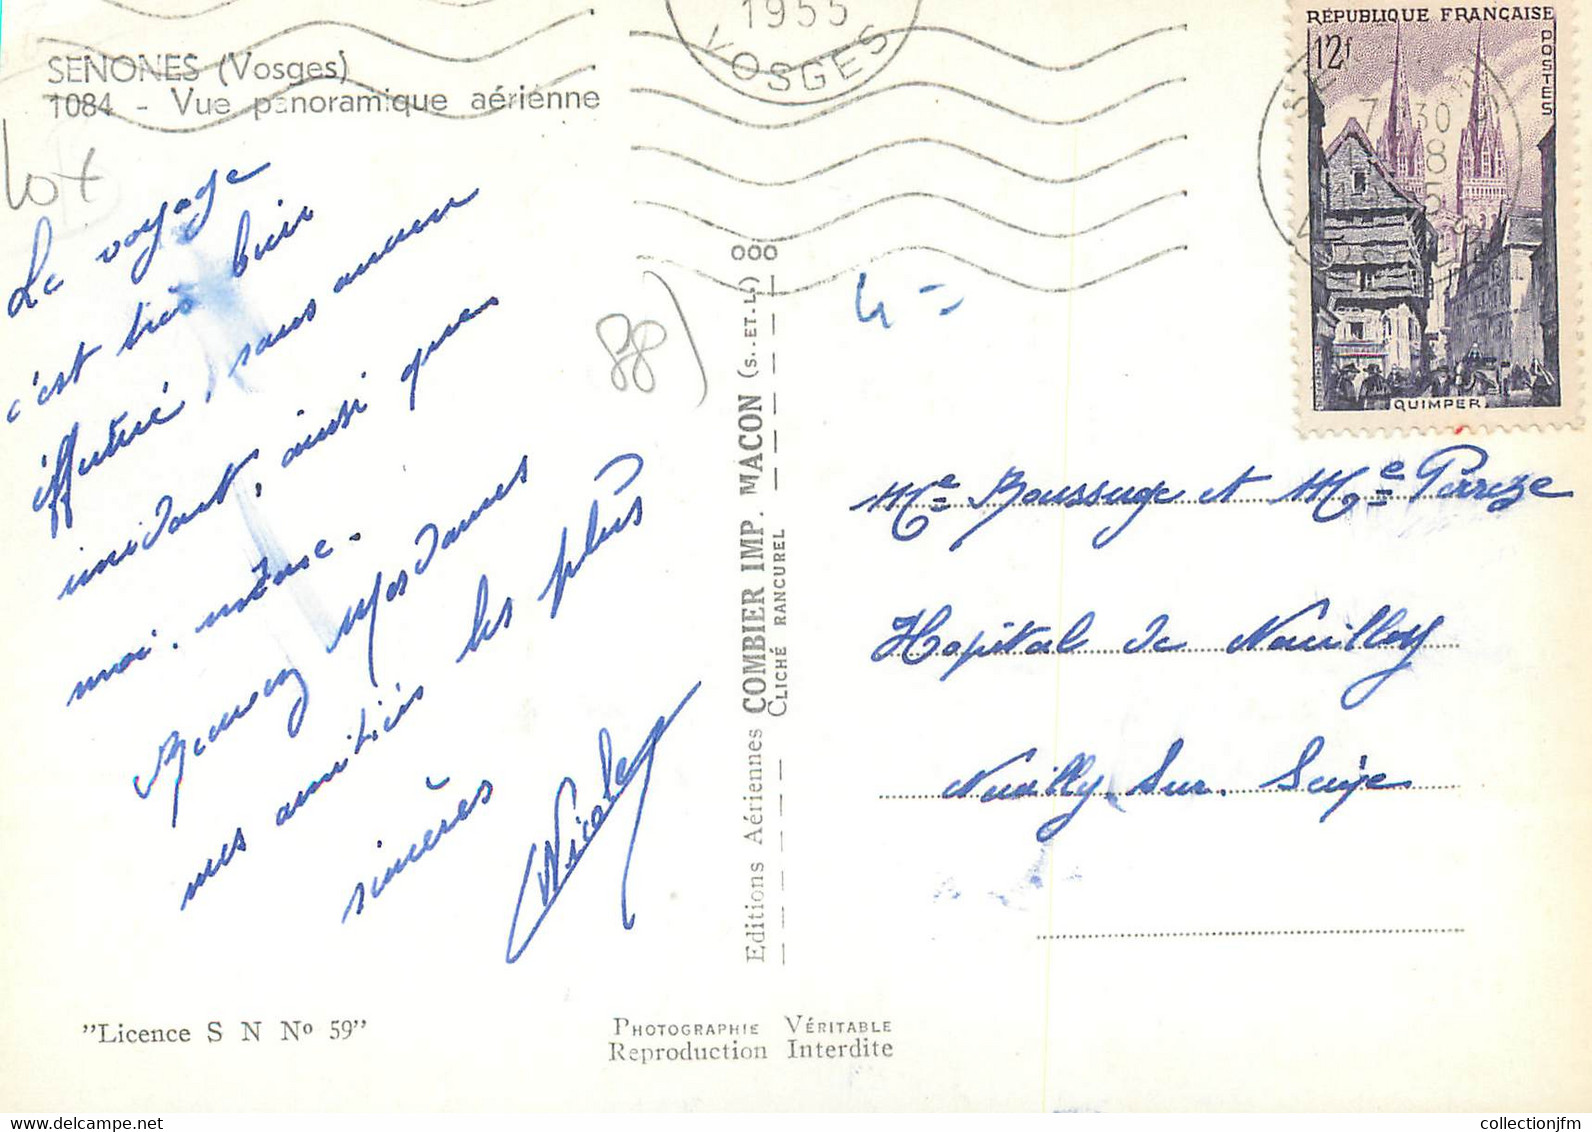 SENONES (Vosges)
1084 - Vue panoramique aérienne
Le voyage
c'est très bien
éffectué, sans aucun
incident, ainsi que
moi-même.
Recevez Mesdames
mes amitiés les plus
sincères
Nicole
"Licence S N Nº 59"
88)
4 =
Editions Aériennes COMBIER IMP. MACON (S.-ET-L.)
CLICHÉ RANCUREL
PHOTOGRAPHIE VÉRITABLE
Reproduction Interdite
1955
VOSGES
RÉPUBLIQUE FRANÇAISE
POSTES
12f
7 30
8
QUIMPER
Me Boussuge et Me Perreze
Hopital de Neuilly
Neuilly. Sur. Seine
collectionjfm